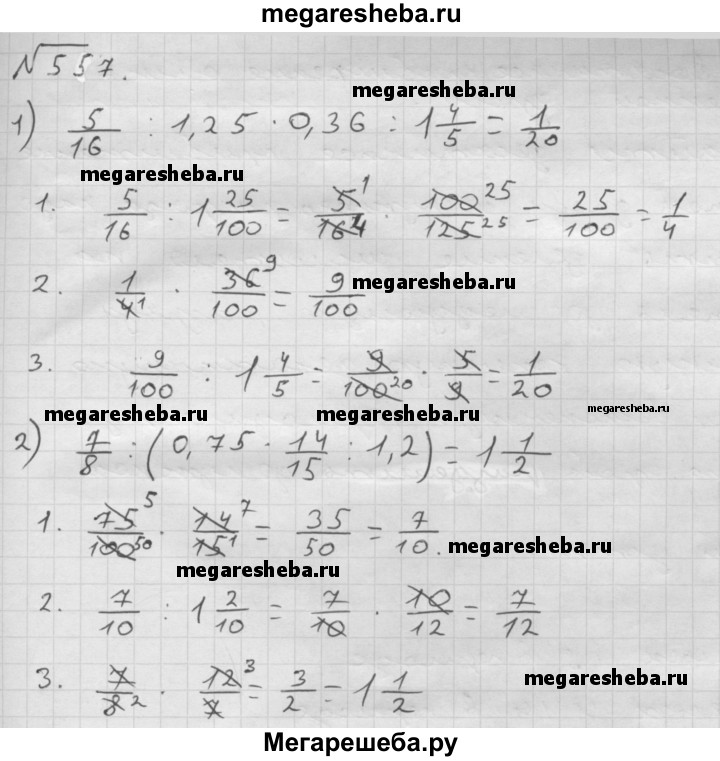 megaresheba.ru
№557.
megaresheba.ru
1) 5/16 : 1,25 · 0,36 : 1 4/5 = 1/20
megaresheba.ru
1. 5/16 : 1 25/100 = 5 1/16 4 · 100 25/125 25 = 25/100 = 1/4
2. 1/4 1 · 36 9/100 = 9/100 megaresheba.ru
3. 9/100 : 1 4/5 = 9/100 20 · 5/9 = 1/20
megaresheba.ru megaresheba.ru megaresheba.ru
2) 7/8 : (0,75 · 14/15 : 1,2) = 1 1/2
1. 75 5/100 50 · 14 7/15 1 = 35/50 = 7/10. megaresheba.ru
megaresheba.ru
2. 7/10 : 1 2/10 = 7/10 · 10/12 = 7/12
3. 7/8 2 · 12 3/7 = 3/2 = 1 1/2 megaresheba.ru
Мегарешеба.ру